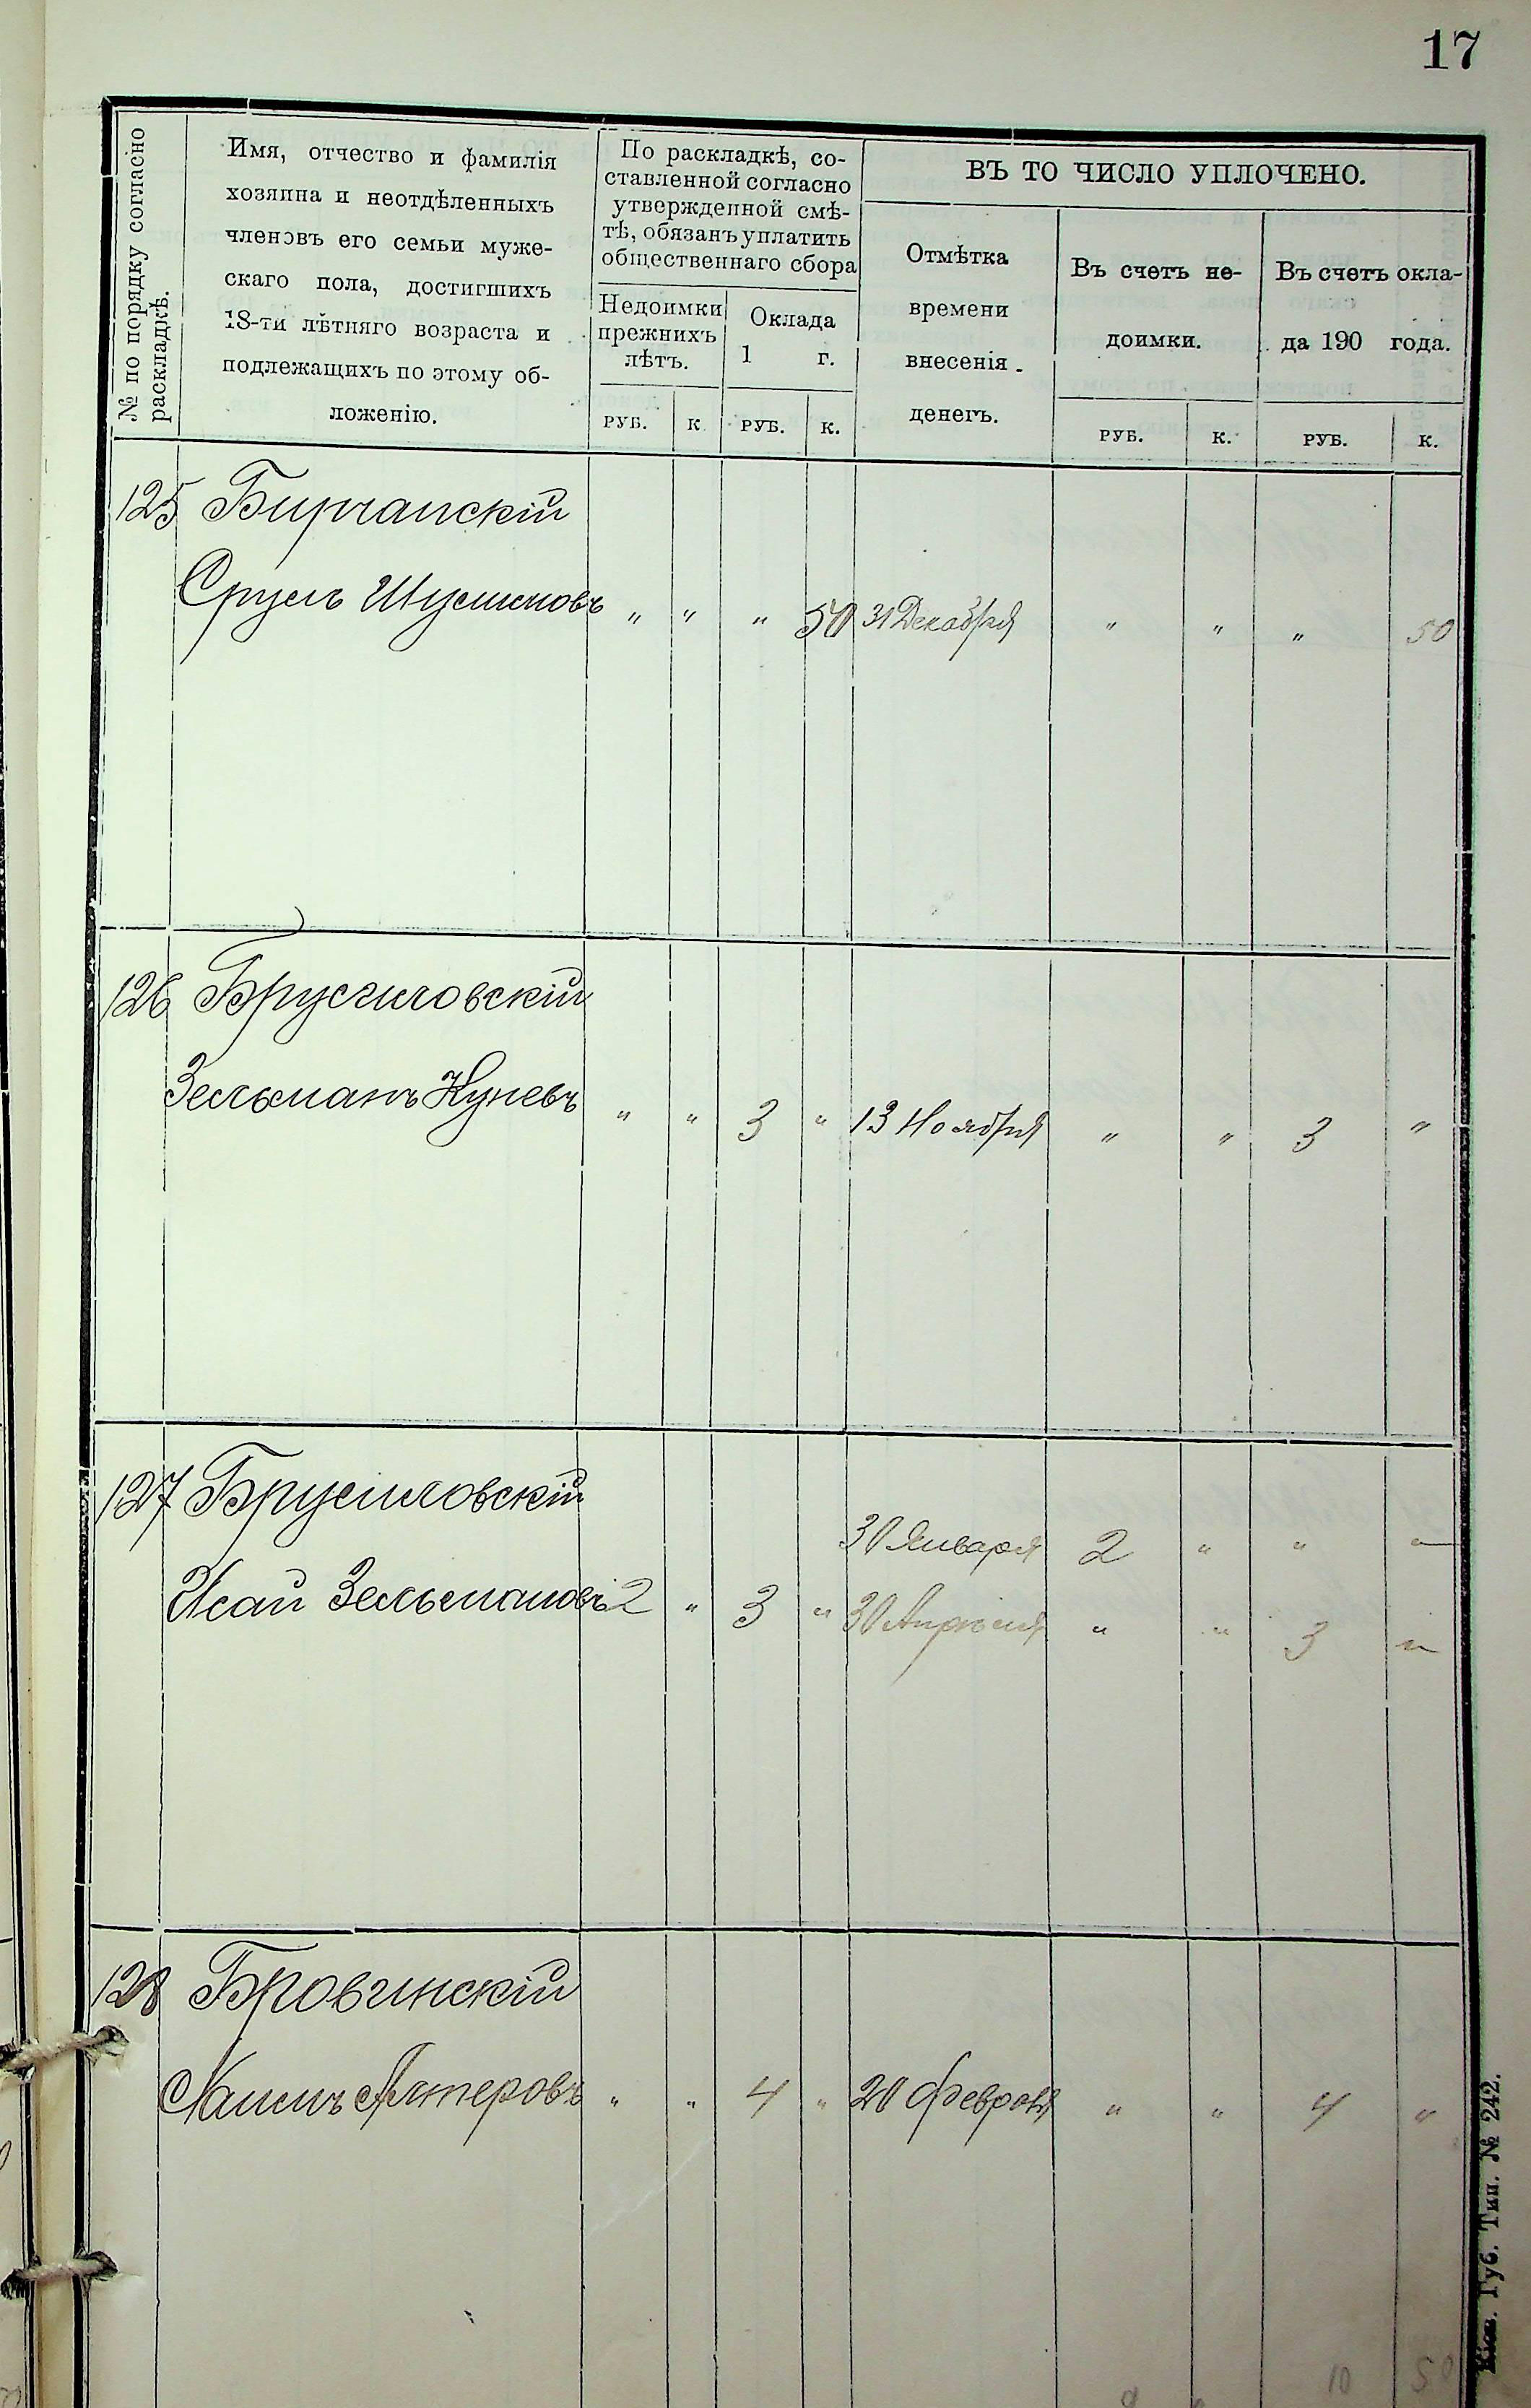 17
№ по порядку согласно
раскладкѣ.
Имя, отчество и фамилія
хозяина и неотдѣленныхъ
членовъ его семьи муже-
скаго пола, достигшихъ
18-ти лѣтняго возраста и
подлежащихъ по этому об-
ложенію.
По раскладкѣ, со-
ставленной согласно
утвержденной смѣ-
тѣ, обязанъ уплатить
общественнаго сбора
Недоимки
прежнихъ
лѣтъ.
Оклада
1 г.
ВЪ ТО ЧИСЛО УПЛОЧЕНО.
Отмѣтка
времени
внесенія
денегъ.
Въ счетъ не-
доимки.
Въ счетъ окла-
да 190 года.
РУБ. К РУБ. К. РУБ. К. РУБ. К.
125 Бирчанскій
Сруль " " " 50 31 Декабря " " " 50
126 Брусиловскій
Зельманъ " " 3 " 13 Ноября " " 3 "
127 Брусиловскій
30 Января 2 " " "
Исай Зельмановъ 2 " 3 " 30 Апрѣля " " 3 "
128 Бровинскій
Алтеровъ " " 4 " 20 Февраля " " 4 "
10 50
Кіев. Губ. Тип. № 242.